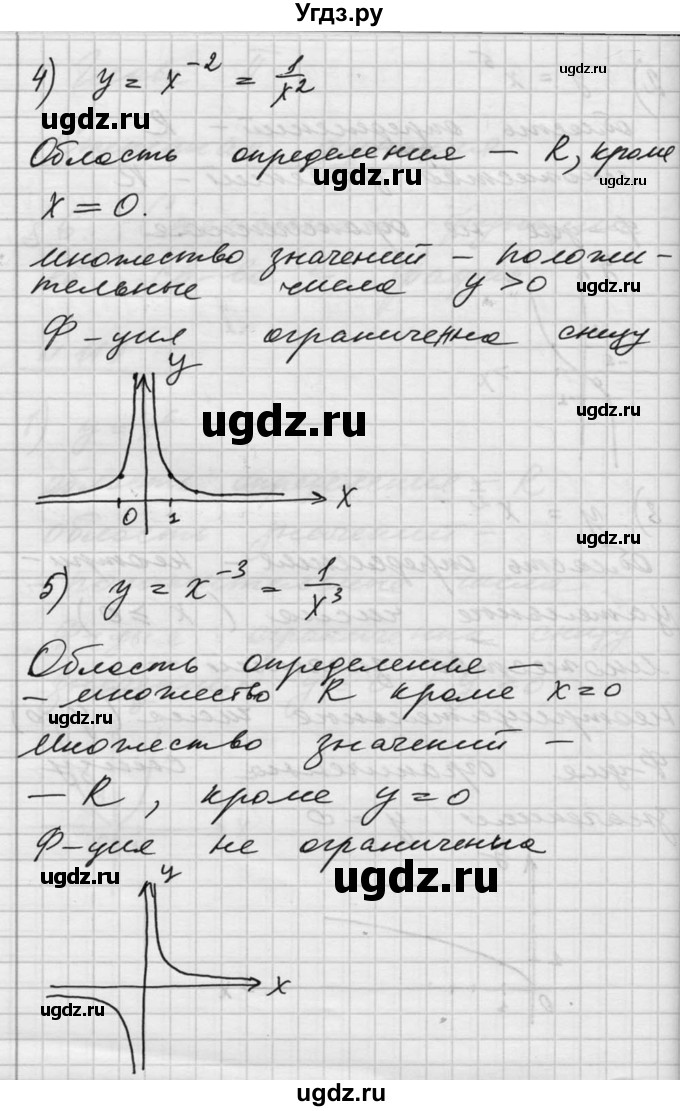 Угдз.ру
4) y = x⁻² = 1/x²
ugdz.ru
Область определения – R, кроме
ugdz.ru
ugdz.ru
x = 0.
множество значений – положи-
тельные числа y > 0
ugdz.ru
ugdz.ru
Ф-ция ограниченна снизу
y
ugdz.ru
ugdz.ru
x
0 1
ugdz.ru
5) y = x⁻³ = 1/x³
Область определенье –
– множество R кроме x = 0
ugdz.ru
ugdz.ru
Множество значений –
– R, кроме y = 0
ugdz.ru
Ф-ция не ограниченна
ugdz.ru
ugdz.ru
y
x
ugdz.ru
ugdz.ru
ugdz.ru